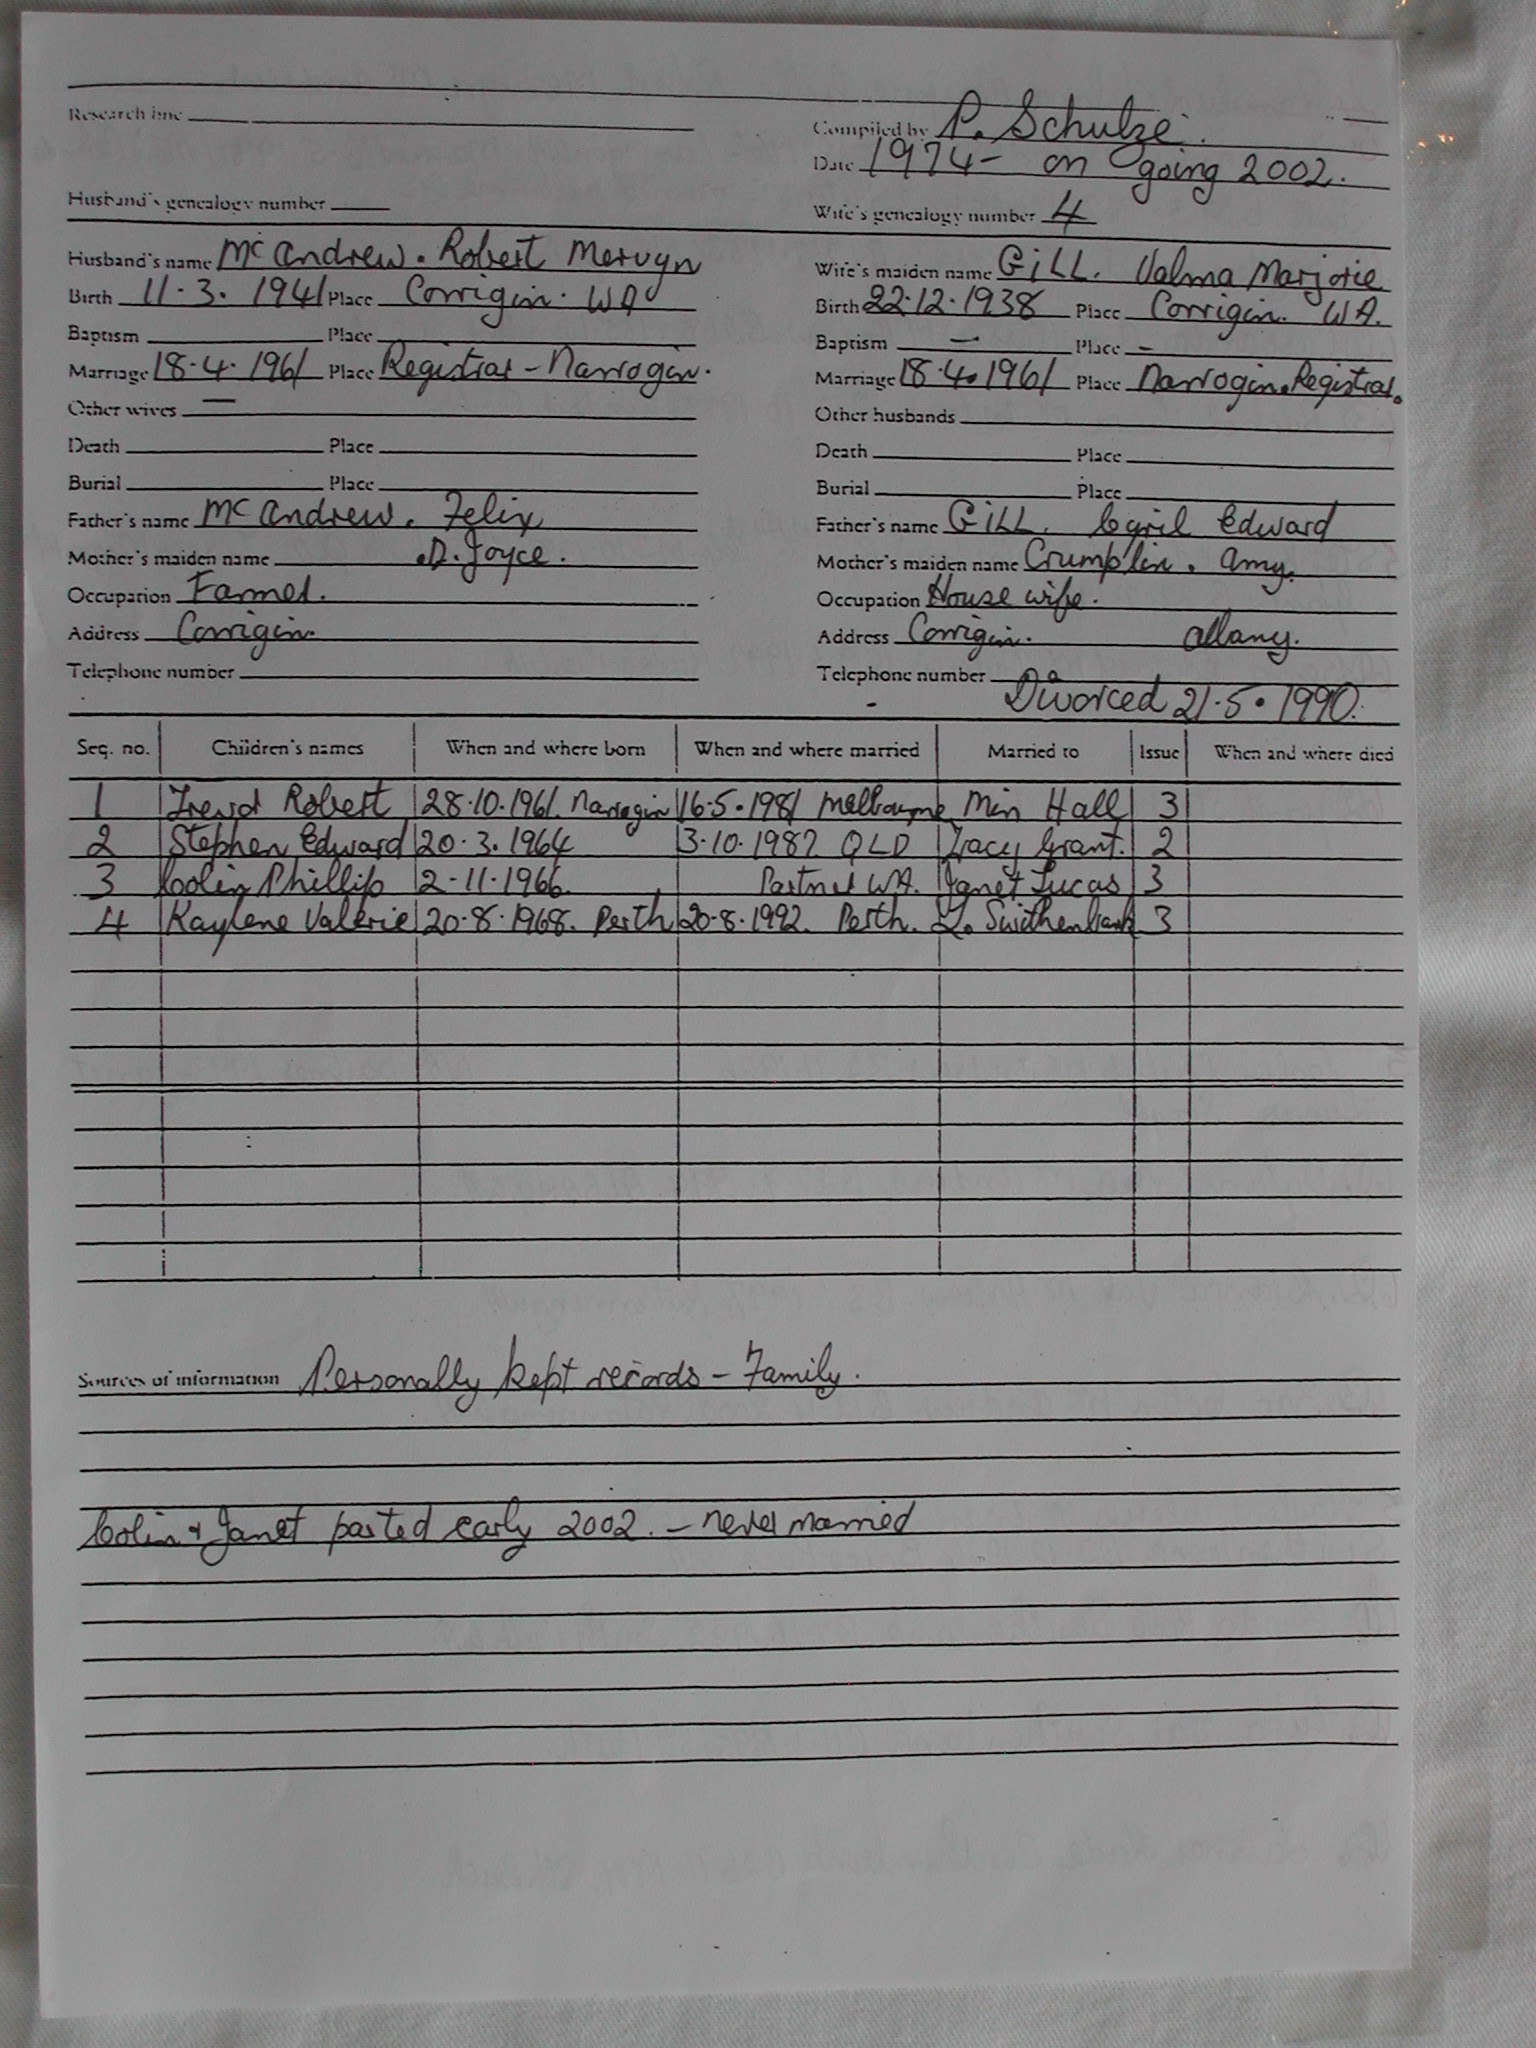 Research line
Compiled by P. Schulze.
Date 1974- on going 2002.
Husband's genealogy number
Wife's genealogy number 4
Husband's name McAndrew. Robert Mervyn
Wife's maiden name GiLL. Valma Marjorie
Birth 11.3.1941 Place Corrigin. WA
Birth 22.12.1938 Place Corrigin. WA.
Baptism Place
Baptism — Place –
Marriage 18.4.1961 Place Registrar - Narrogin.
Marriage 18.4.1961 Place Narrogin. Registrar.
Other wives —
Other husbands
Death Place
Death Place
Burial Place
Burial Place
Father's name McAndrew. Felix
Father's name GiLL. Cyril Edward
Mother's maiden name .D. Joyce.
Mother's maiden name Crumplin. Amy.
Occupation Farmer.
Occupation House wife.
Address Corrigin.
Address Corrigin. Albany.
Telephone number
Telephone number
Divorced 21.5.1990.
Seq. no. Children's names When and where born When and where married Married to Issue When and where died
1 Trevor Robert 28.10.1961. Narrogin 16.5.1981 Melbourne Min Hall 3
2 Stephen Edward 20.3.1964 3.10.1987 QLD Tracy Grant. 2
3 Colin Phillip 2-11-1966. Partner WA. Janet Lucas 3
4 Kaylene Valerie 20.8.1968. Perth 20.8.1992. Perth. Swithenbank 3
Sources of information Personally kept records - Family.
Colin + Janet parted early 2002. - never married